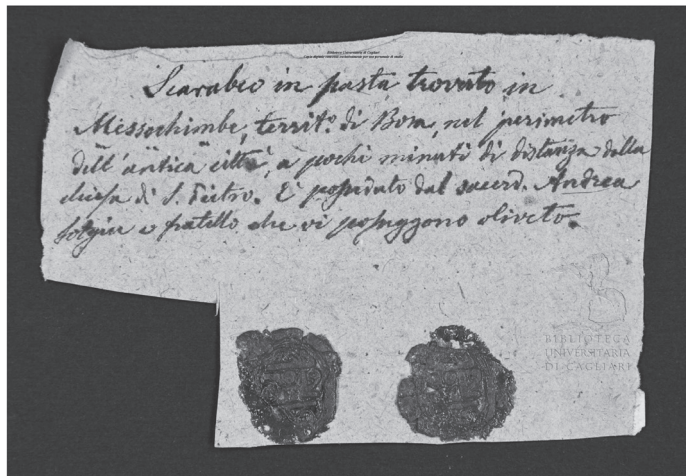 Biblioteca Universitaria di Cagliari
Scarabeo in pasta trovato in
Messochimbe, territ.º di Bosa, nel perimetro
dell'antica città, a pochi minuti di distanza dalla
chiesa di S. Pietro. E' posseduto dal sacerd. Andrea
e fratello che vi posseggono oliveto.
BIBLIOTECA
UNIVERSITARIA
DI CAGLIARI